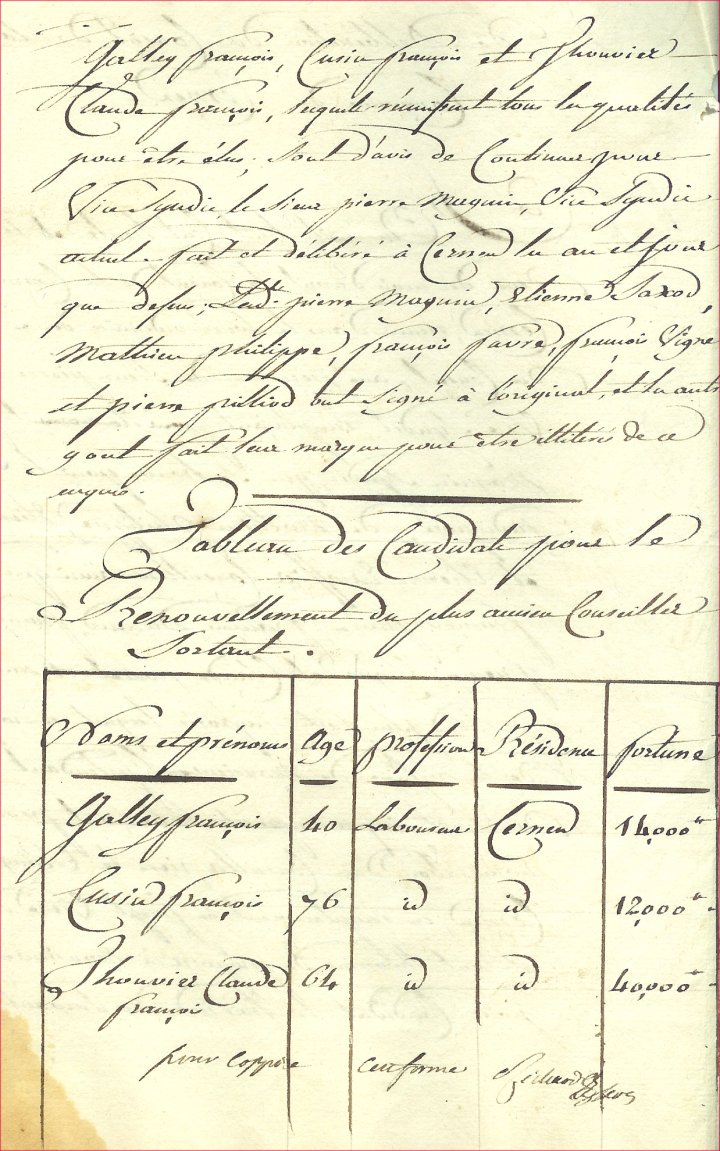 Gallay françois, Cusin françois et Thouvier
Claude françois, lesquels réunissent tous les qualités
pour être élus, sont d'avis de Continuer pour
Vice Syndic, le sieur pierre Maquin, Vice Syndic
actuel. fait et délibéré à Cernex les an et jour
que dessus, Lesd.ts pierre Maquin, Etienne Saxod,
Mathieu philippe, françois favre, françois Vigne
et pierre pilliod ont signé à l'original, et les autres
y ont fait leur marque pour être illitérés de ce
enquis.
Tableau des Candidats pour le
Renouvellement du plus ancien Conseiller
Sortant.
Noms et prénoms age profession Résidence fortune
Gallay françois 40 Laboureur Cernex 14,000 tt
Cusin françois 76 id id 12,000 tt
Thouvier Claude 64 id id 40,000 tt
françois
pour coppie conforme